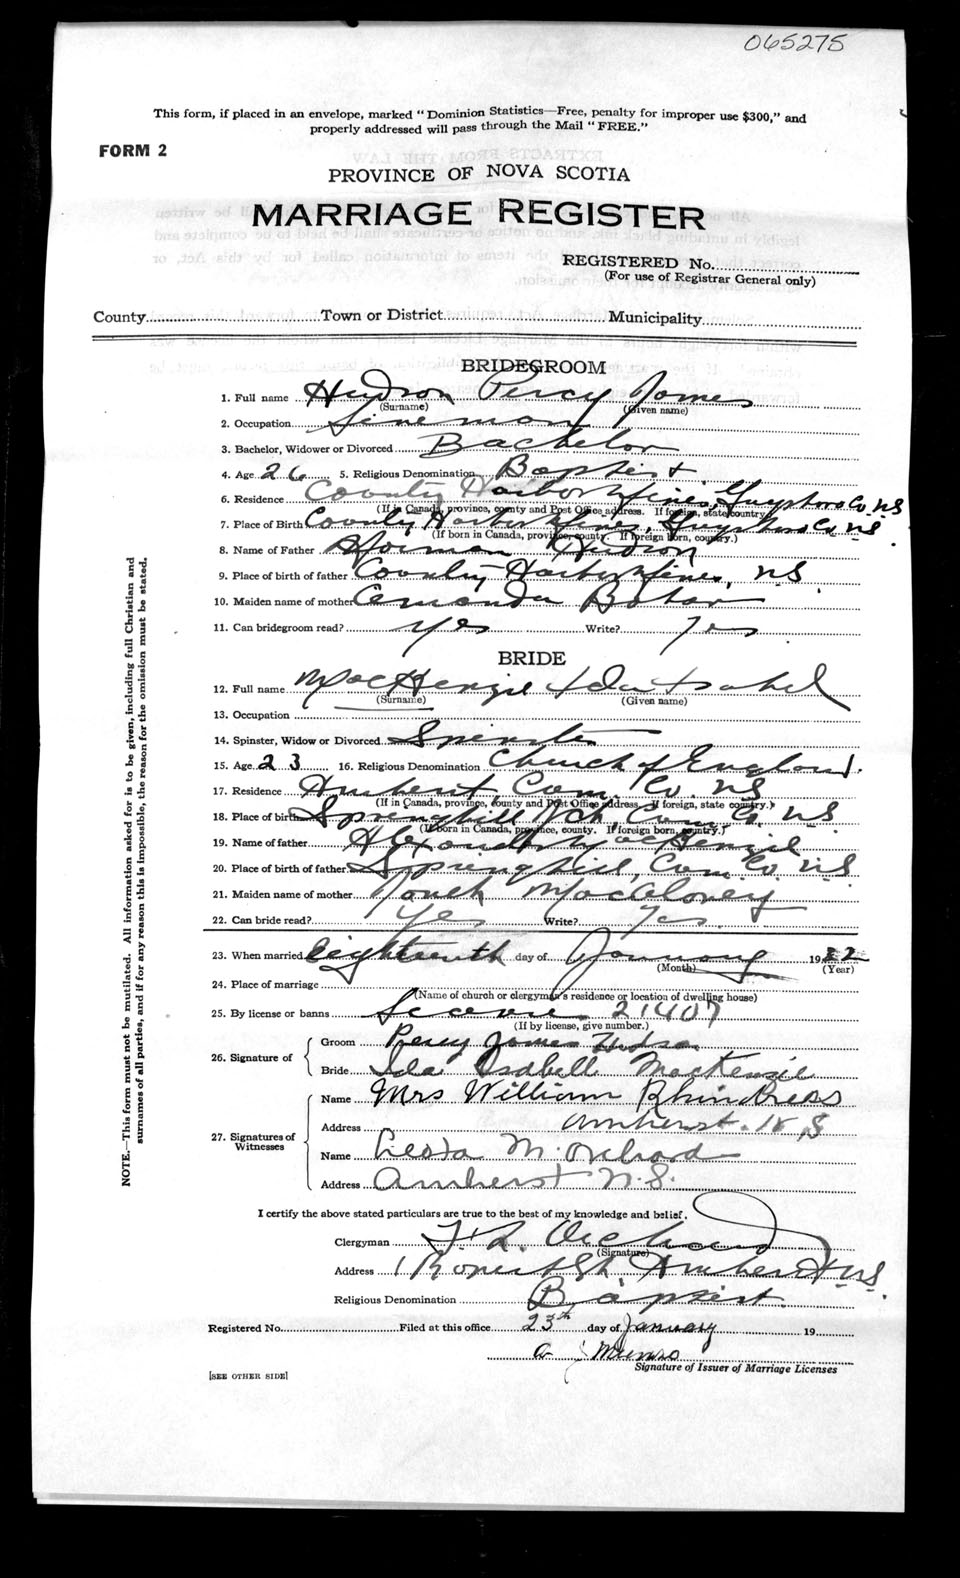 065275
This form, if placed in an envelope, marked "Dominion Statistics—Free, penalty for improper use $300," and
properly addressed will pass through the Mail "FREE."
FORM 2
PROVINCE OF NOVA SCOTIA
MARRIAGE REGISTER
REGISTERED No.
(For use of Registrar General only)
County Town or District Municipality
BRIDEGROOM
1. Full name Hudson Percy James
(Surname) (Given name)
2. Occupation Lineman
3. Bachelor, Widower or Divorced Bachelor
4. Age 26 5. Religious Denomination Baptist
6. Residence County Harbor Mines, Guysboro Co. NS
(If in Canada, province, county and Post Office address. If foreign, state country.)
7. Place of Birth County Harbor Mines, Guysboro Co. NS.
(If born in Canada, province, county. If foreign born, country.)
8. Name of Father Norman Hudson
9. Place of birth of father County Harbor Mines, NS
10. Maiden name of mother Amanda Baker
11. Can bridegroom read? Yes Write? Yes
BRIDE
12. Full name MacKenzie Ida Isabel
(Surname) (Given name)
13. Occupation
14. Spinster, Widow or Divorced Spinster
15. Age 23 16. Religious Denomination Church of England.
17. Residence Amherst, Cum. Co. NS
(If in Canada, province, county and Post Office address. If foreign, state country.)
18. Place of birth Springhill Jch, Cum. Co. NS
(If born in Canada, province, county. If foreign born, country.)
19. Name of father Alexander MacKenzie
20. Place of birth of father Springhill, Cum. Co. NS
21. Maiden name of mother MacAloney
22. Can bride read? Yes Write? Yes
23. When married Eighteenth day of January 19
(Month) (Year)
24. Place of marriage
(Name of church or clergyman's residence or location of dwelling house)
25. By license or banns License 21407
(If by license, give number.)
26. Signature of
Groom Percy James Hudson
Bride Ida Isabell MacKenzie
27. Signatures of Witnesses
Name Mrs William Rhindress
Address Amherst. N S
Name M. Orchard
Address Amherst N.S.
I certify the above stated particulars are true to the best of my knowledge and belief.
Clergyman Orchard
(Signature)
Address 1 Rupert St. Amherst NS.
Religious Denomination Baptist.
Registered No. Filed at this office 23th day of January 19
Munro
Signature of Issuer of Marriage Licenses
[SEE OTHER SIDE]
NOTE.—This form must not be mutilated. All information asked for is to be given, including full Christian and
surnames of all parties, and if for any reason this is impossible, the reason for the omission must be stated.